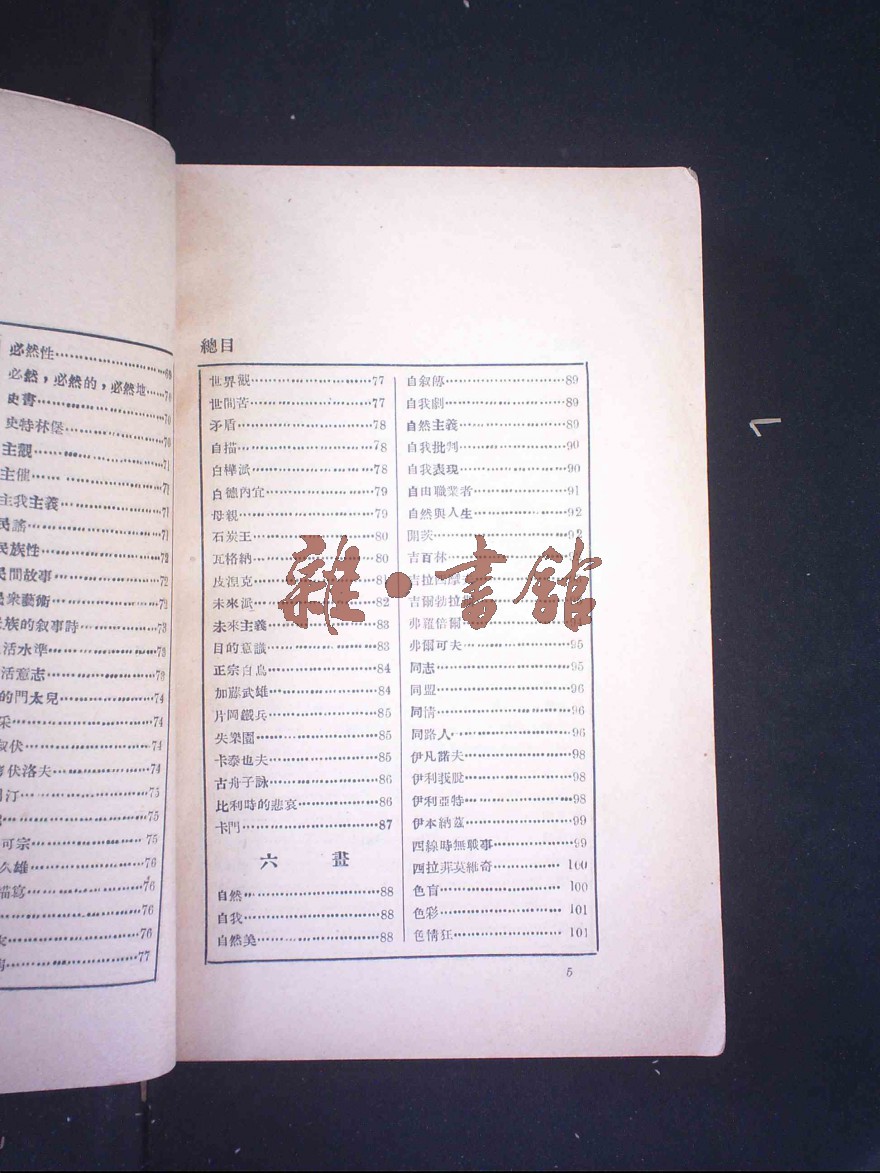 必然性
必然，必然的，必然地
史書
史特林堡
主觀……71
主催……71
主我主義……71
民謠……71
民族性……72
民間故事……72
民衆藝術……72
族的叙事詩……73
活水準……73
活意志……73
的門太兒……74
采……74
伏……74
伏洛夫……74
汀……75
可宗……75
久雄……76
描寫……76
……76
……76
……77
總目
世界觀……77
世間苦……77
矛盾……78
自描……78
白樺派……78
白德內宜……79
母親……79
石炭王……80
瓦格納……80
皮涅克……81
未來派……82
未來主義……83
目的意識……83
正宗白鳥……84
加藤武雄……84
片岡鐵兵……85
失樂園……85
卡泰也夫……85
古舟子詠……86
比利時的悲哀……86
卡門……87
六 畫
自然……88
自我……88
自然美……88
自叙傳……89
自我劇……89
自然主義……89
自我批判……90
自我表現……90
自由職業者……91
自然與人生……92
92
吉百林
吉拉
吉爾勃拉
弗羅倍爾……94
弗爾可夫……95
同志……95
同盟……96
同情……96
同路人……96
伊凡諾夫……98
伊利我脫……98
伊利亞特……98
伊本納茲……99
西線時無戰事……99
西拉菲莫維奇……100
色盲……100
色彩……101
色情狂……101
5
雜·書館